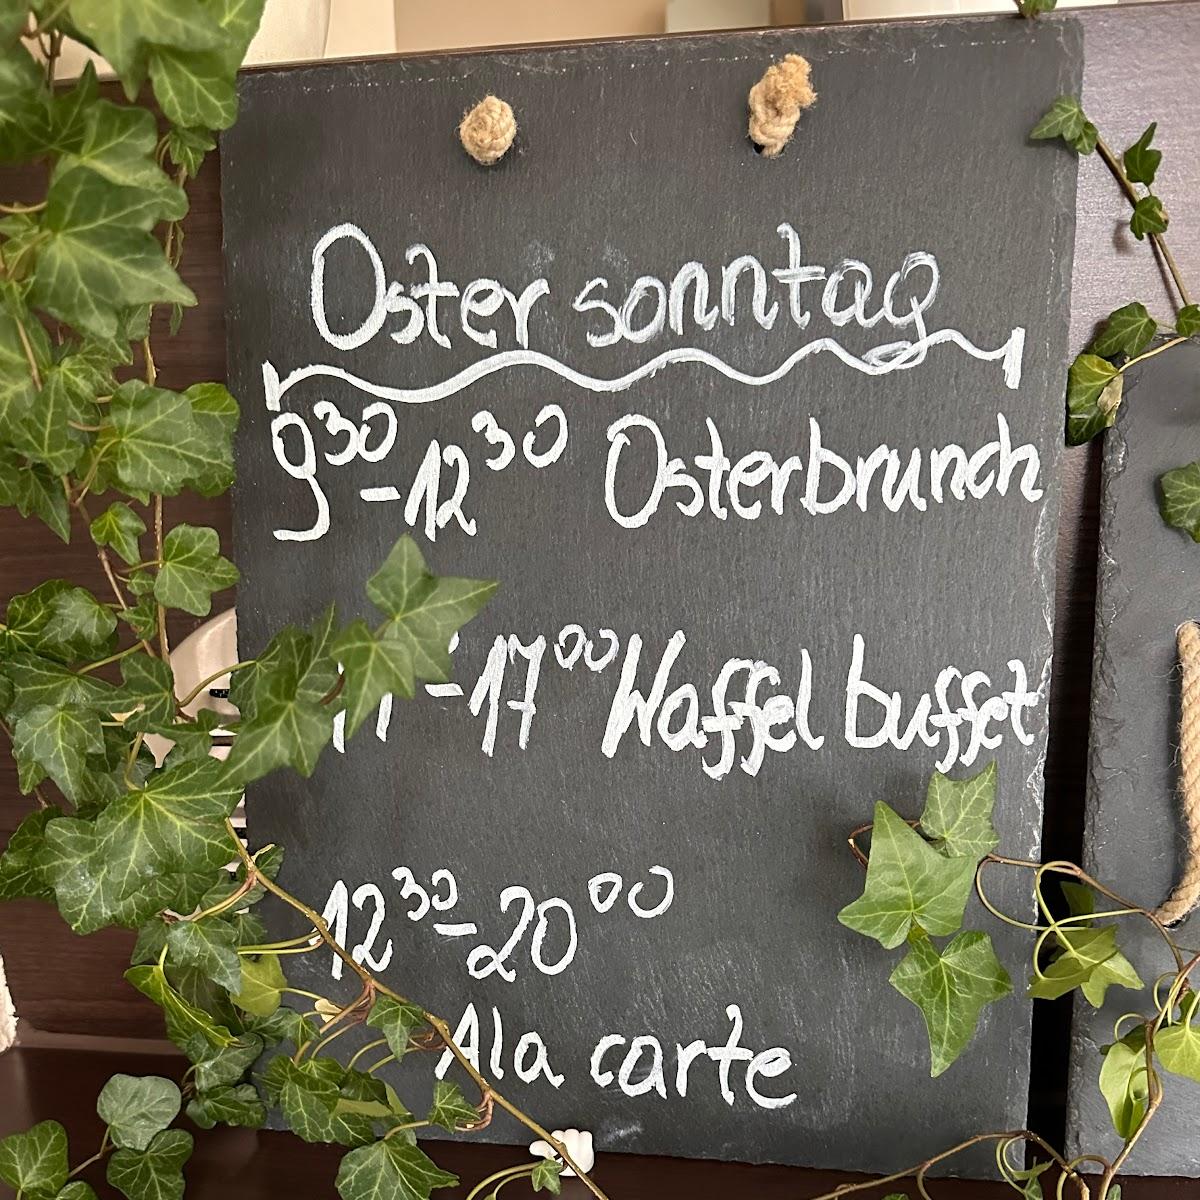 Oster sonntag
9³⁰-12³⁰ Osterbrunch
-17⁰⁰ Waffel buffet
12³⁰-20⁰⁰
A la carte